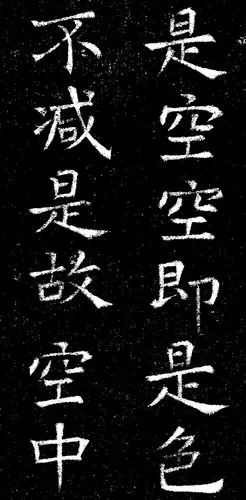 是空空即是色
不減是故空中